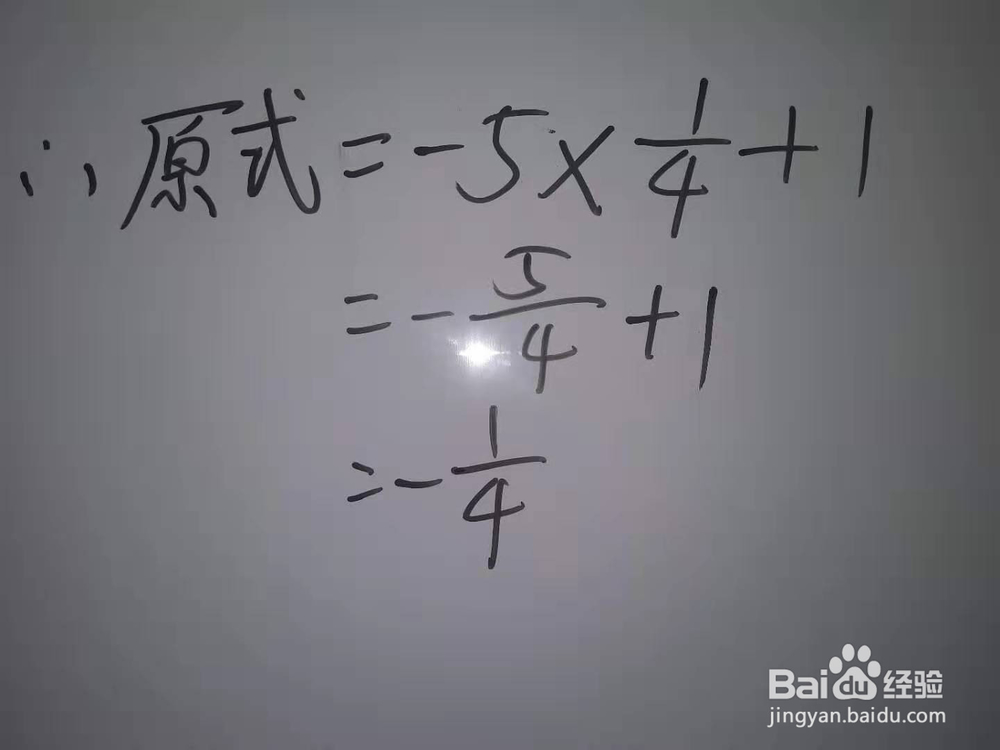 ∴原式=-5×1/4+1
=-5/4+1
=-1/4
Baidu经验
jingyan.baidu.com